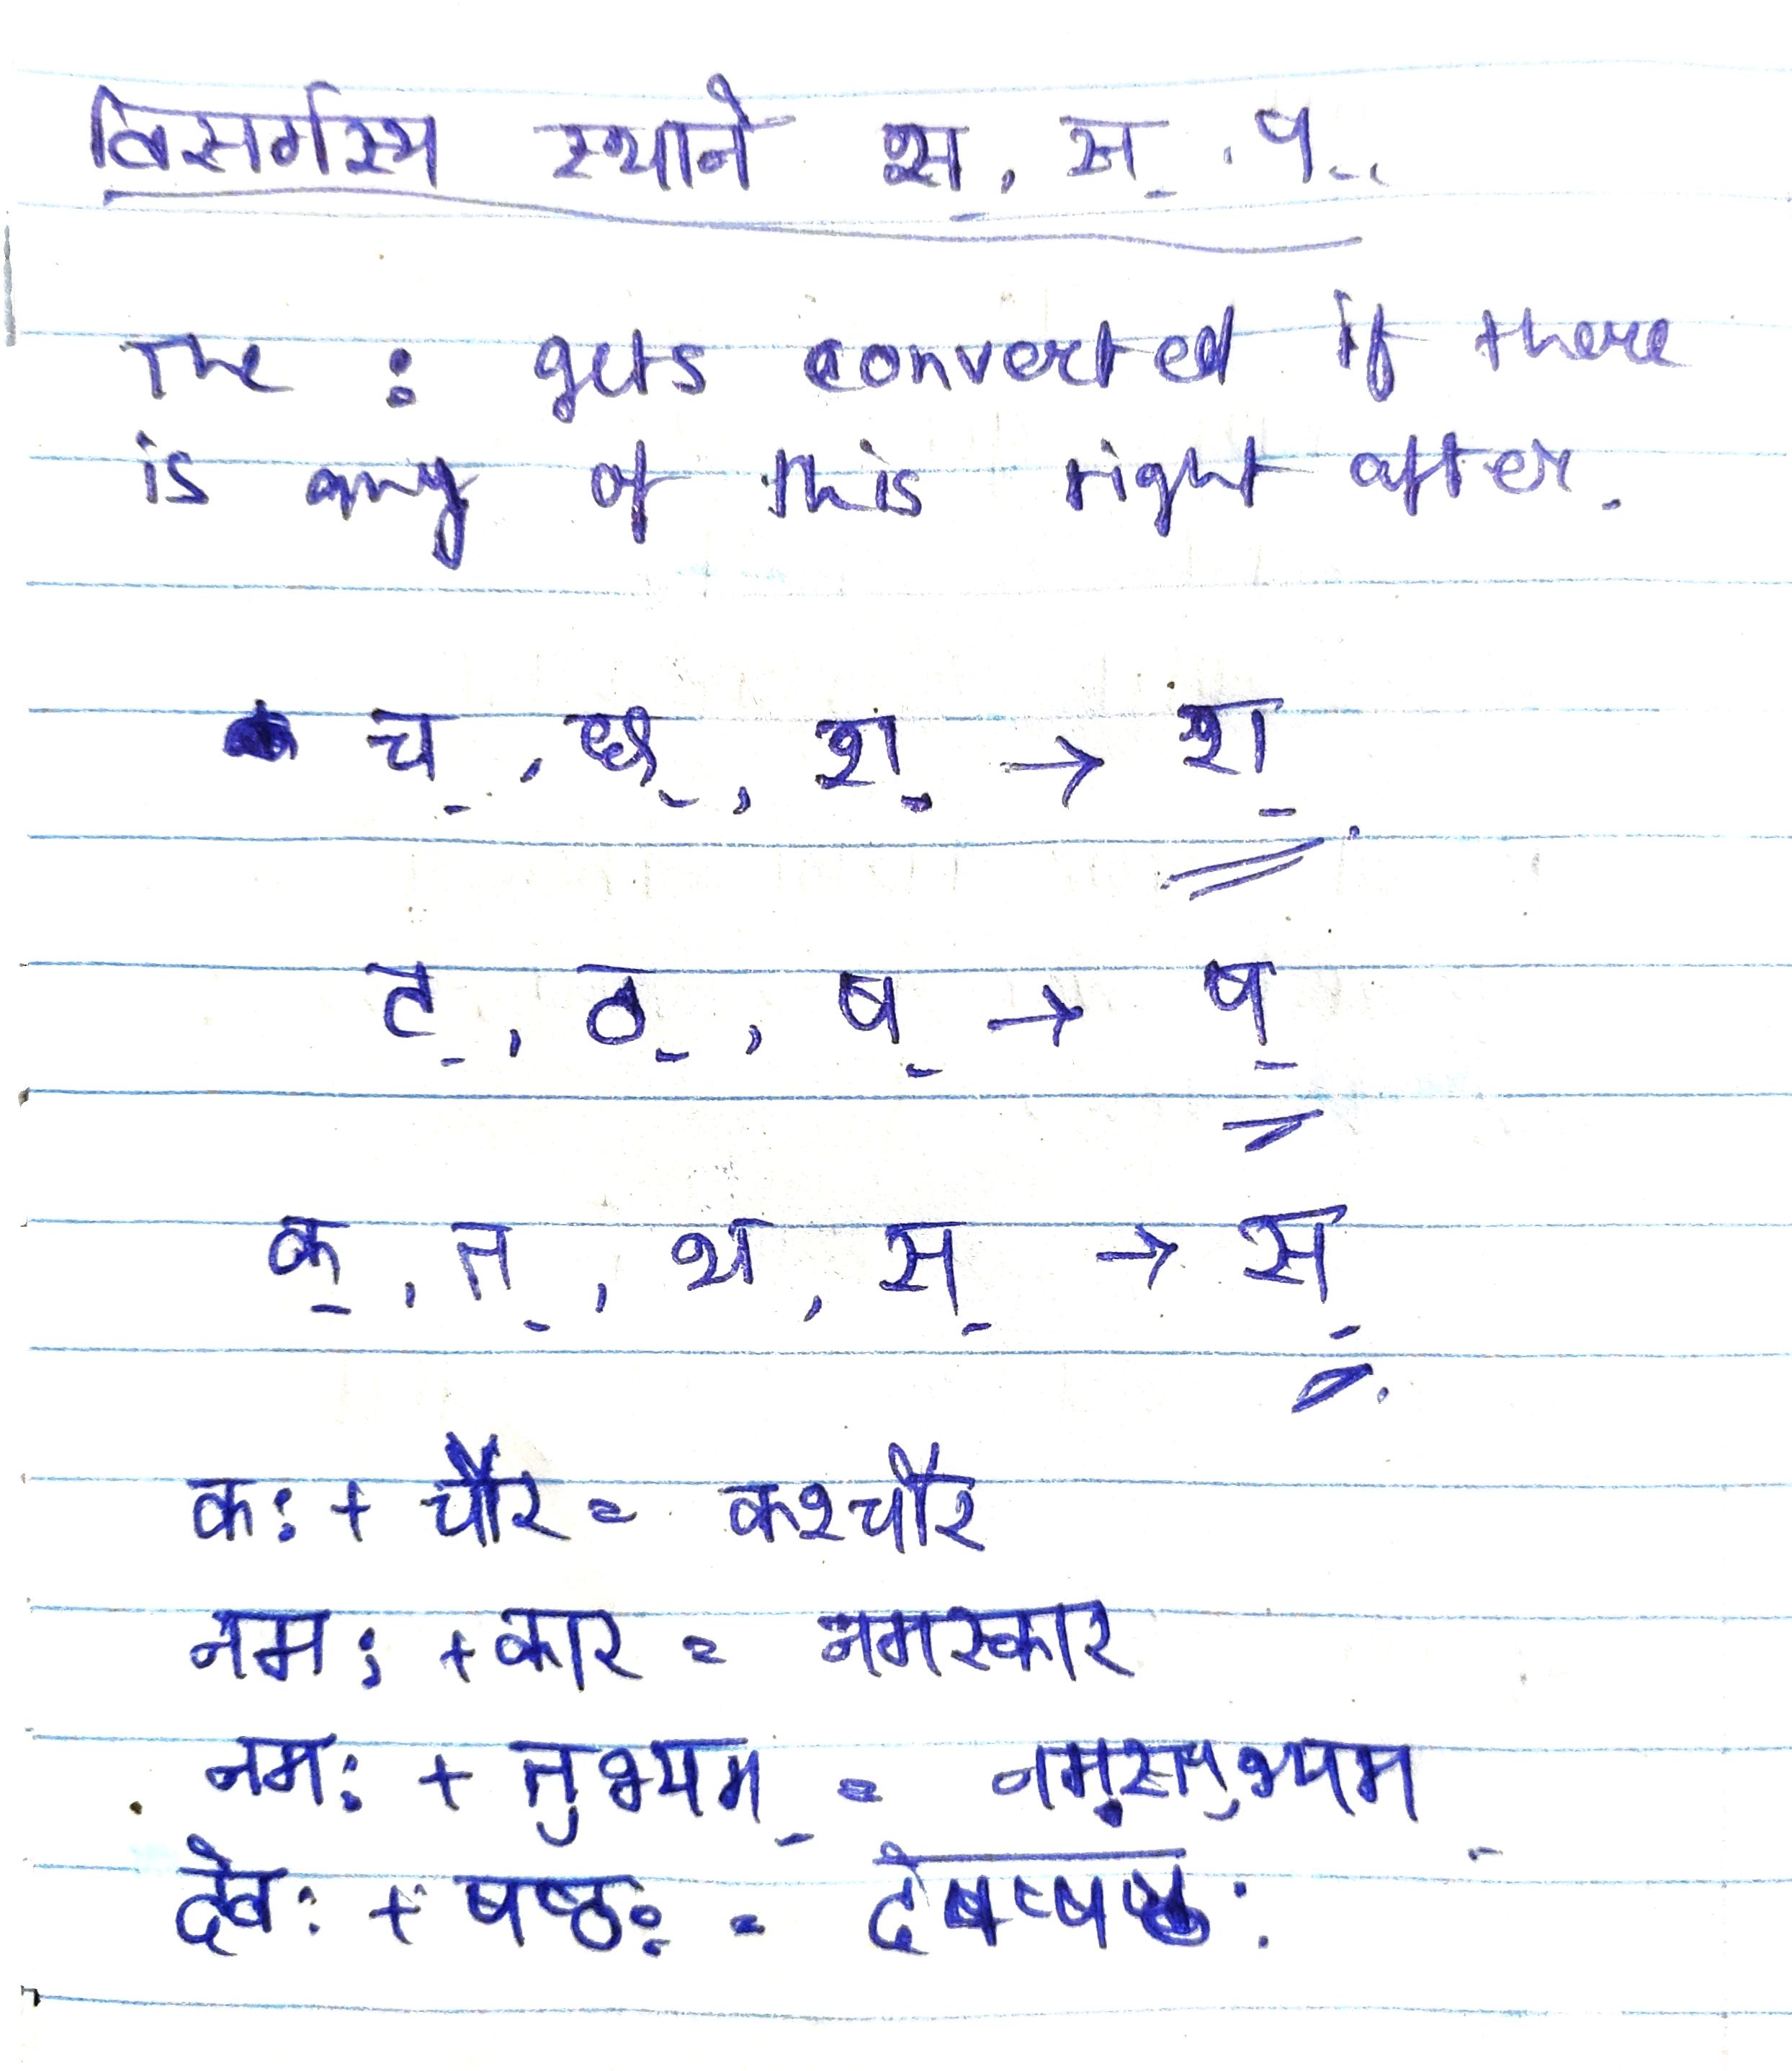 विसर्गस्य स्थाने श्, स्, ष्
The : gets converted if there
is any of this right after.
च्, छ्, श् → श्
ट्, ठ्, ष् → ष्
क्, त्, थ, स् → स्
कः + चौर = कश्चौर
नमः + कार = नमस्कार
नमः + तुभ्यम् = नमस्तुभ्यम्
देवः + षष्ठः = देवष्षष्ठः